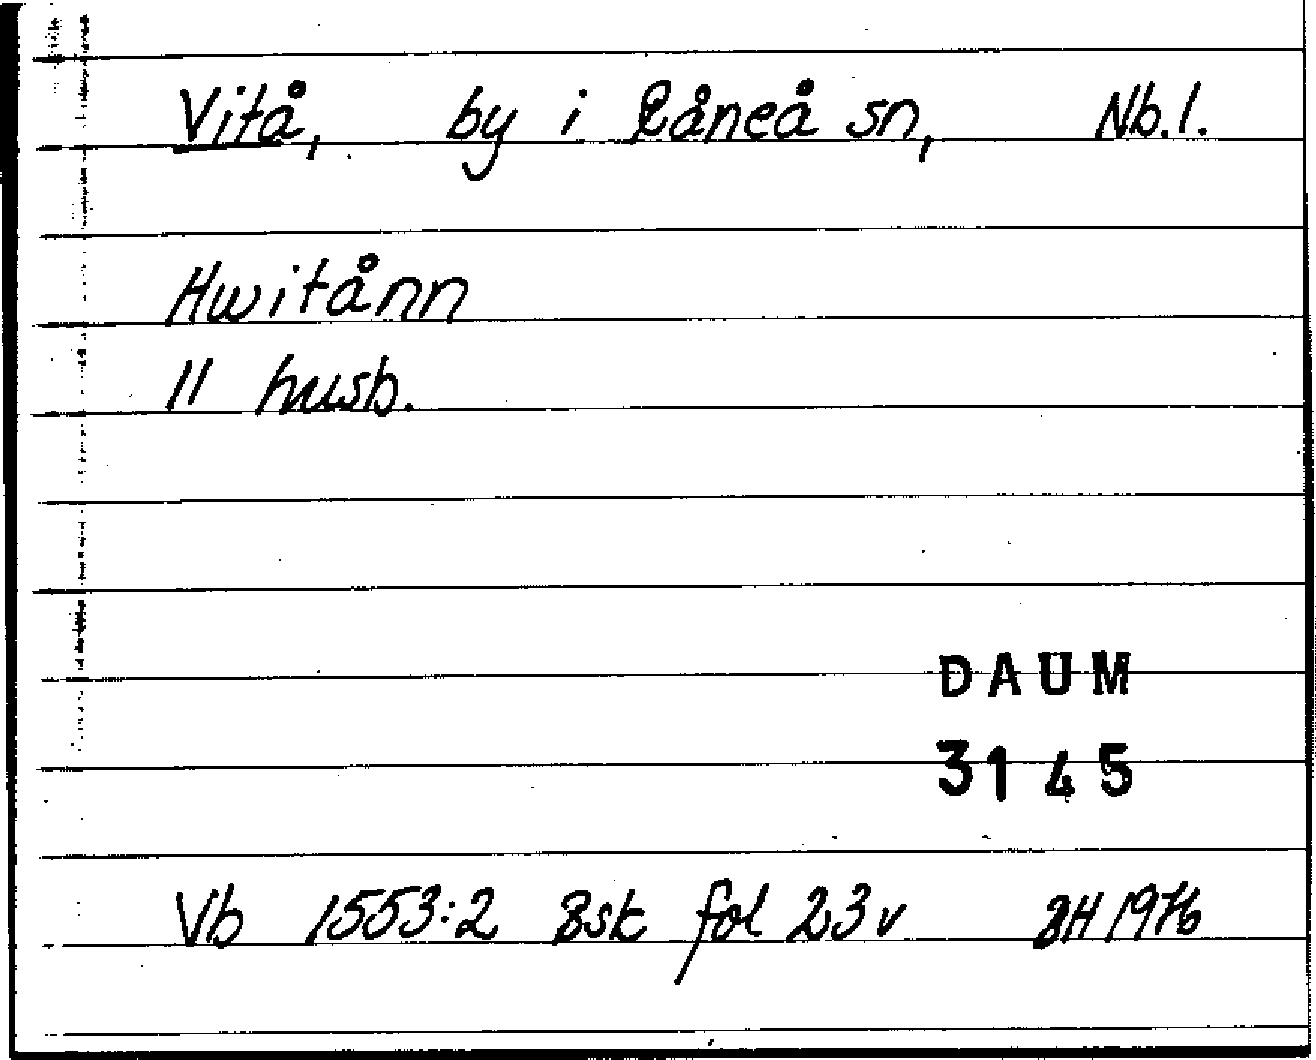 Vitå, by i Råneå sn, Nb.l.
Hwitånn
11 husb.
DAUM
3145
Vb 1553:2 Bsk fol 23v BH 1976